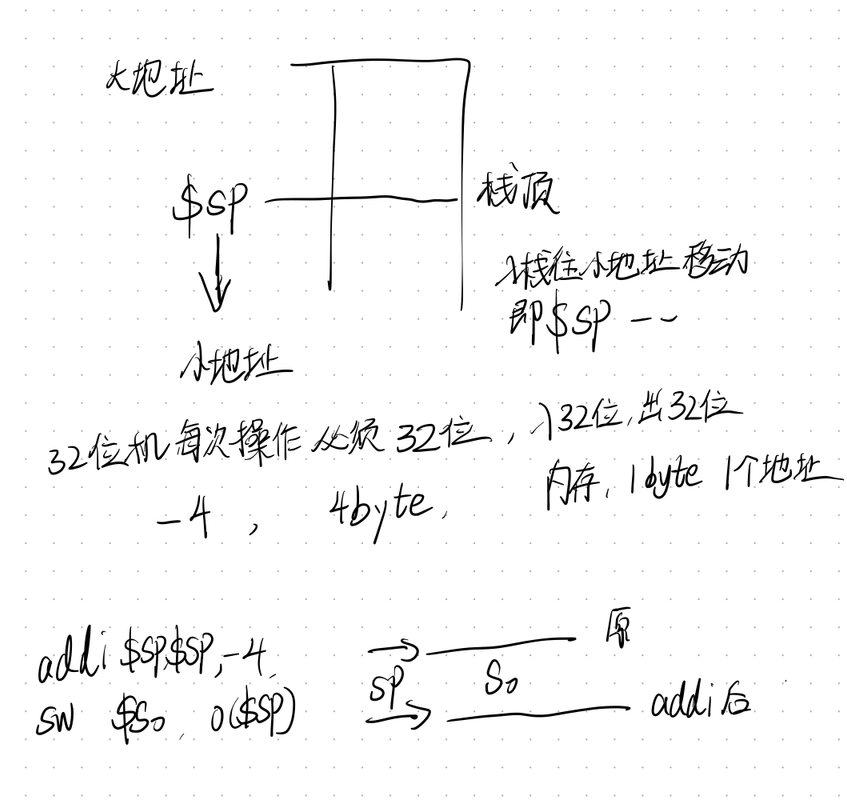 大地址
$sp
栈顶
入栈往小地址移动
即$sp --
小地址
32位机每次操作必须32位，入32位,出32位
-4， 4byte, 内存，1byte 1个地址
addi $sp,$sp,-4 原
sw $s0, 0($sp) sp s0 addi后